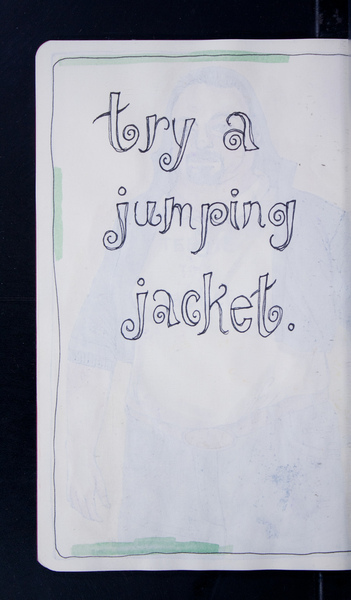 try a
jumping
jacket.